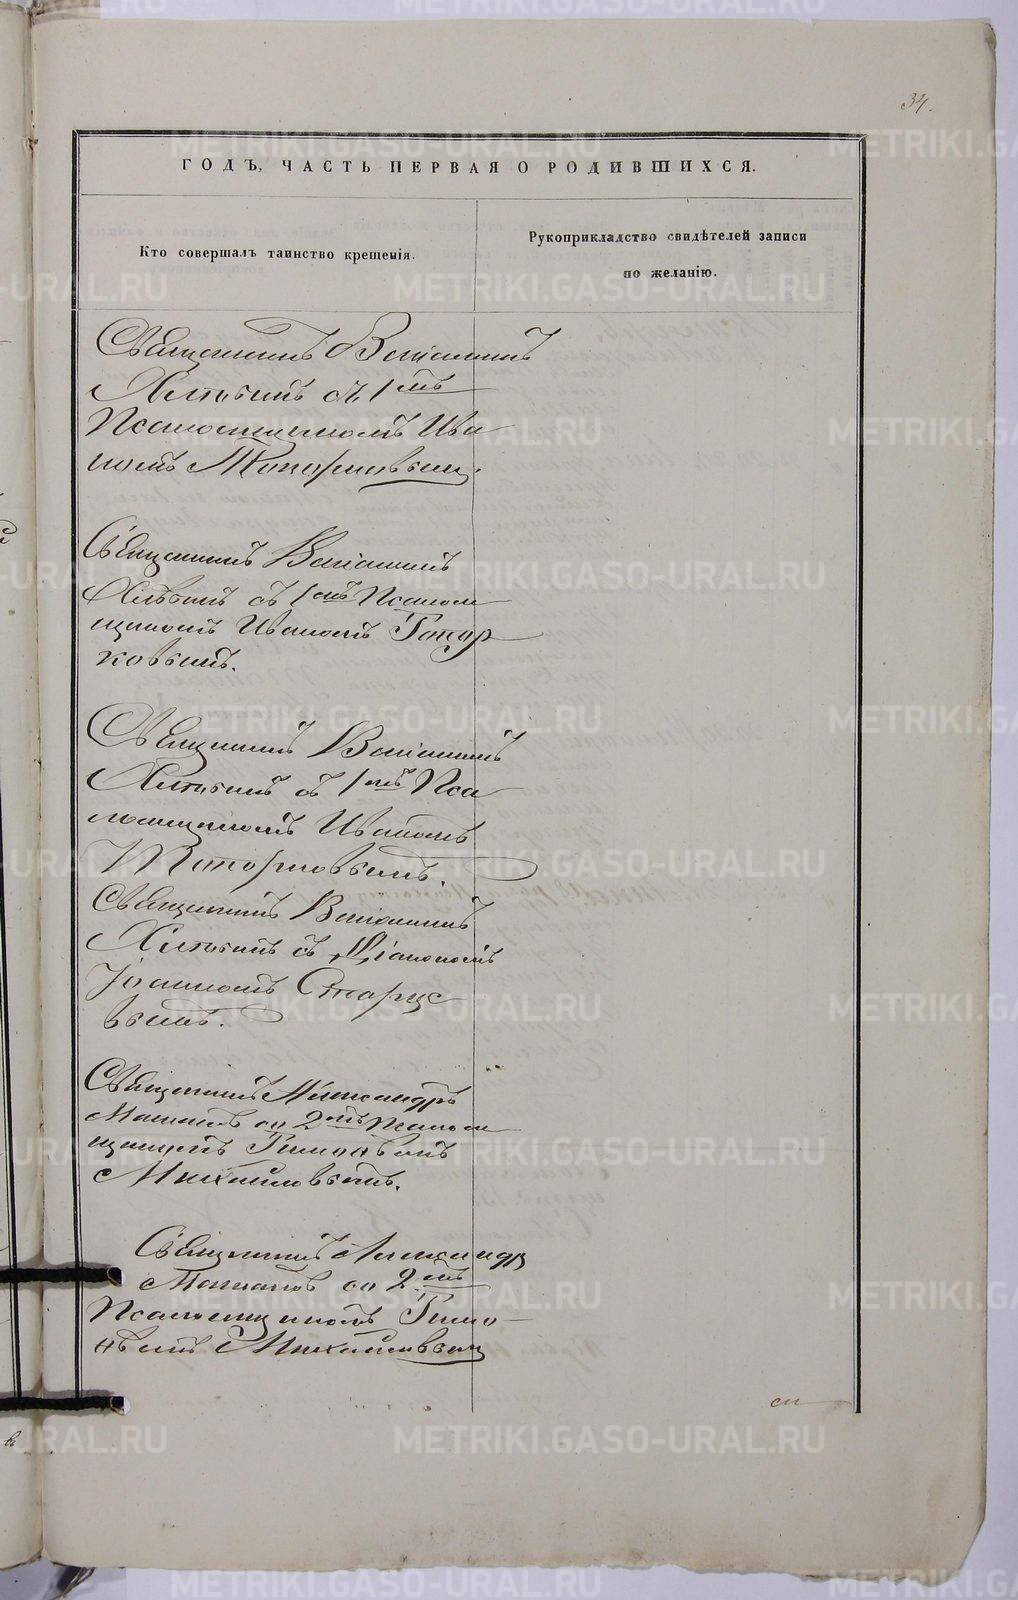 34.
ГОДЪ, ЧАСТЬ ПЕРВАЯ О РОДИВШИХСЯ.
Кто совершалъ таинство крещенія.
Рукоприкладство свидѣтелей записи
по желанію.
Священникъ Веніаминъ
съ 1мъ
Псаломщикомъ Ива
номъ Топорковым.
Священникъ Веніаминъ
съ 1мъ Псалом
щикомъ Иваномъ Топор
ковымъ.
Священникъ Веніаминъ
съ 1мъ Пса
ломщикомъ Иваномъ
Топорковымъ.
Священникъ Веніаминъ
съ Діакономъ
Іоанномъ Старце
вымъ.
Священникъ Александръ
со 2мъ Псалом
щикомъ
Михайловскимъ.
Священникъ Александр
со 2мъ
Псаломщикомъ
METRIKI.GASO-URAL.RU